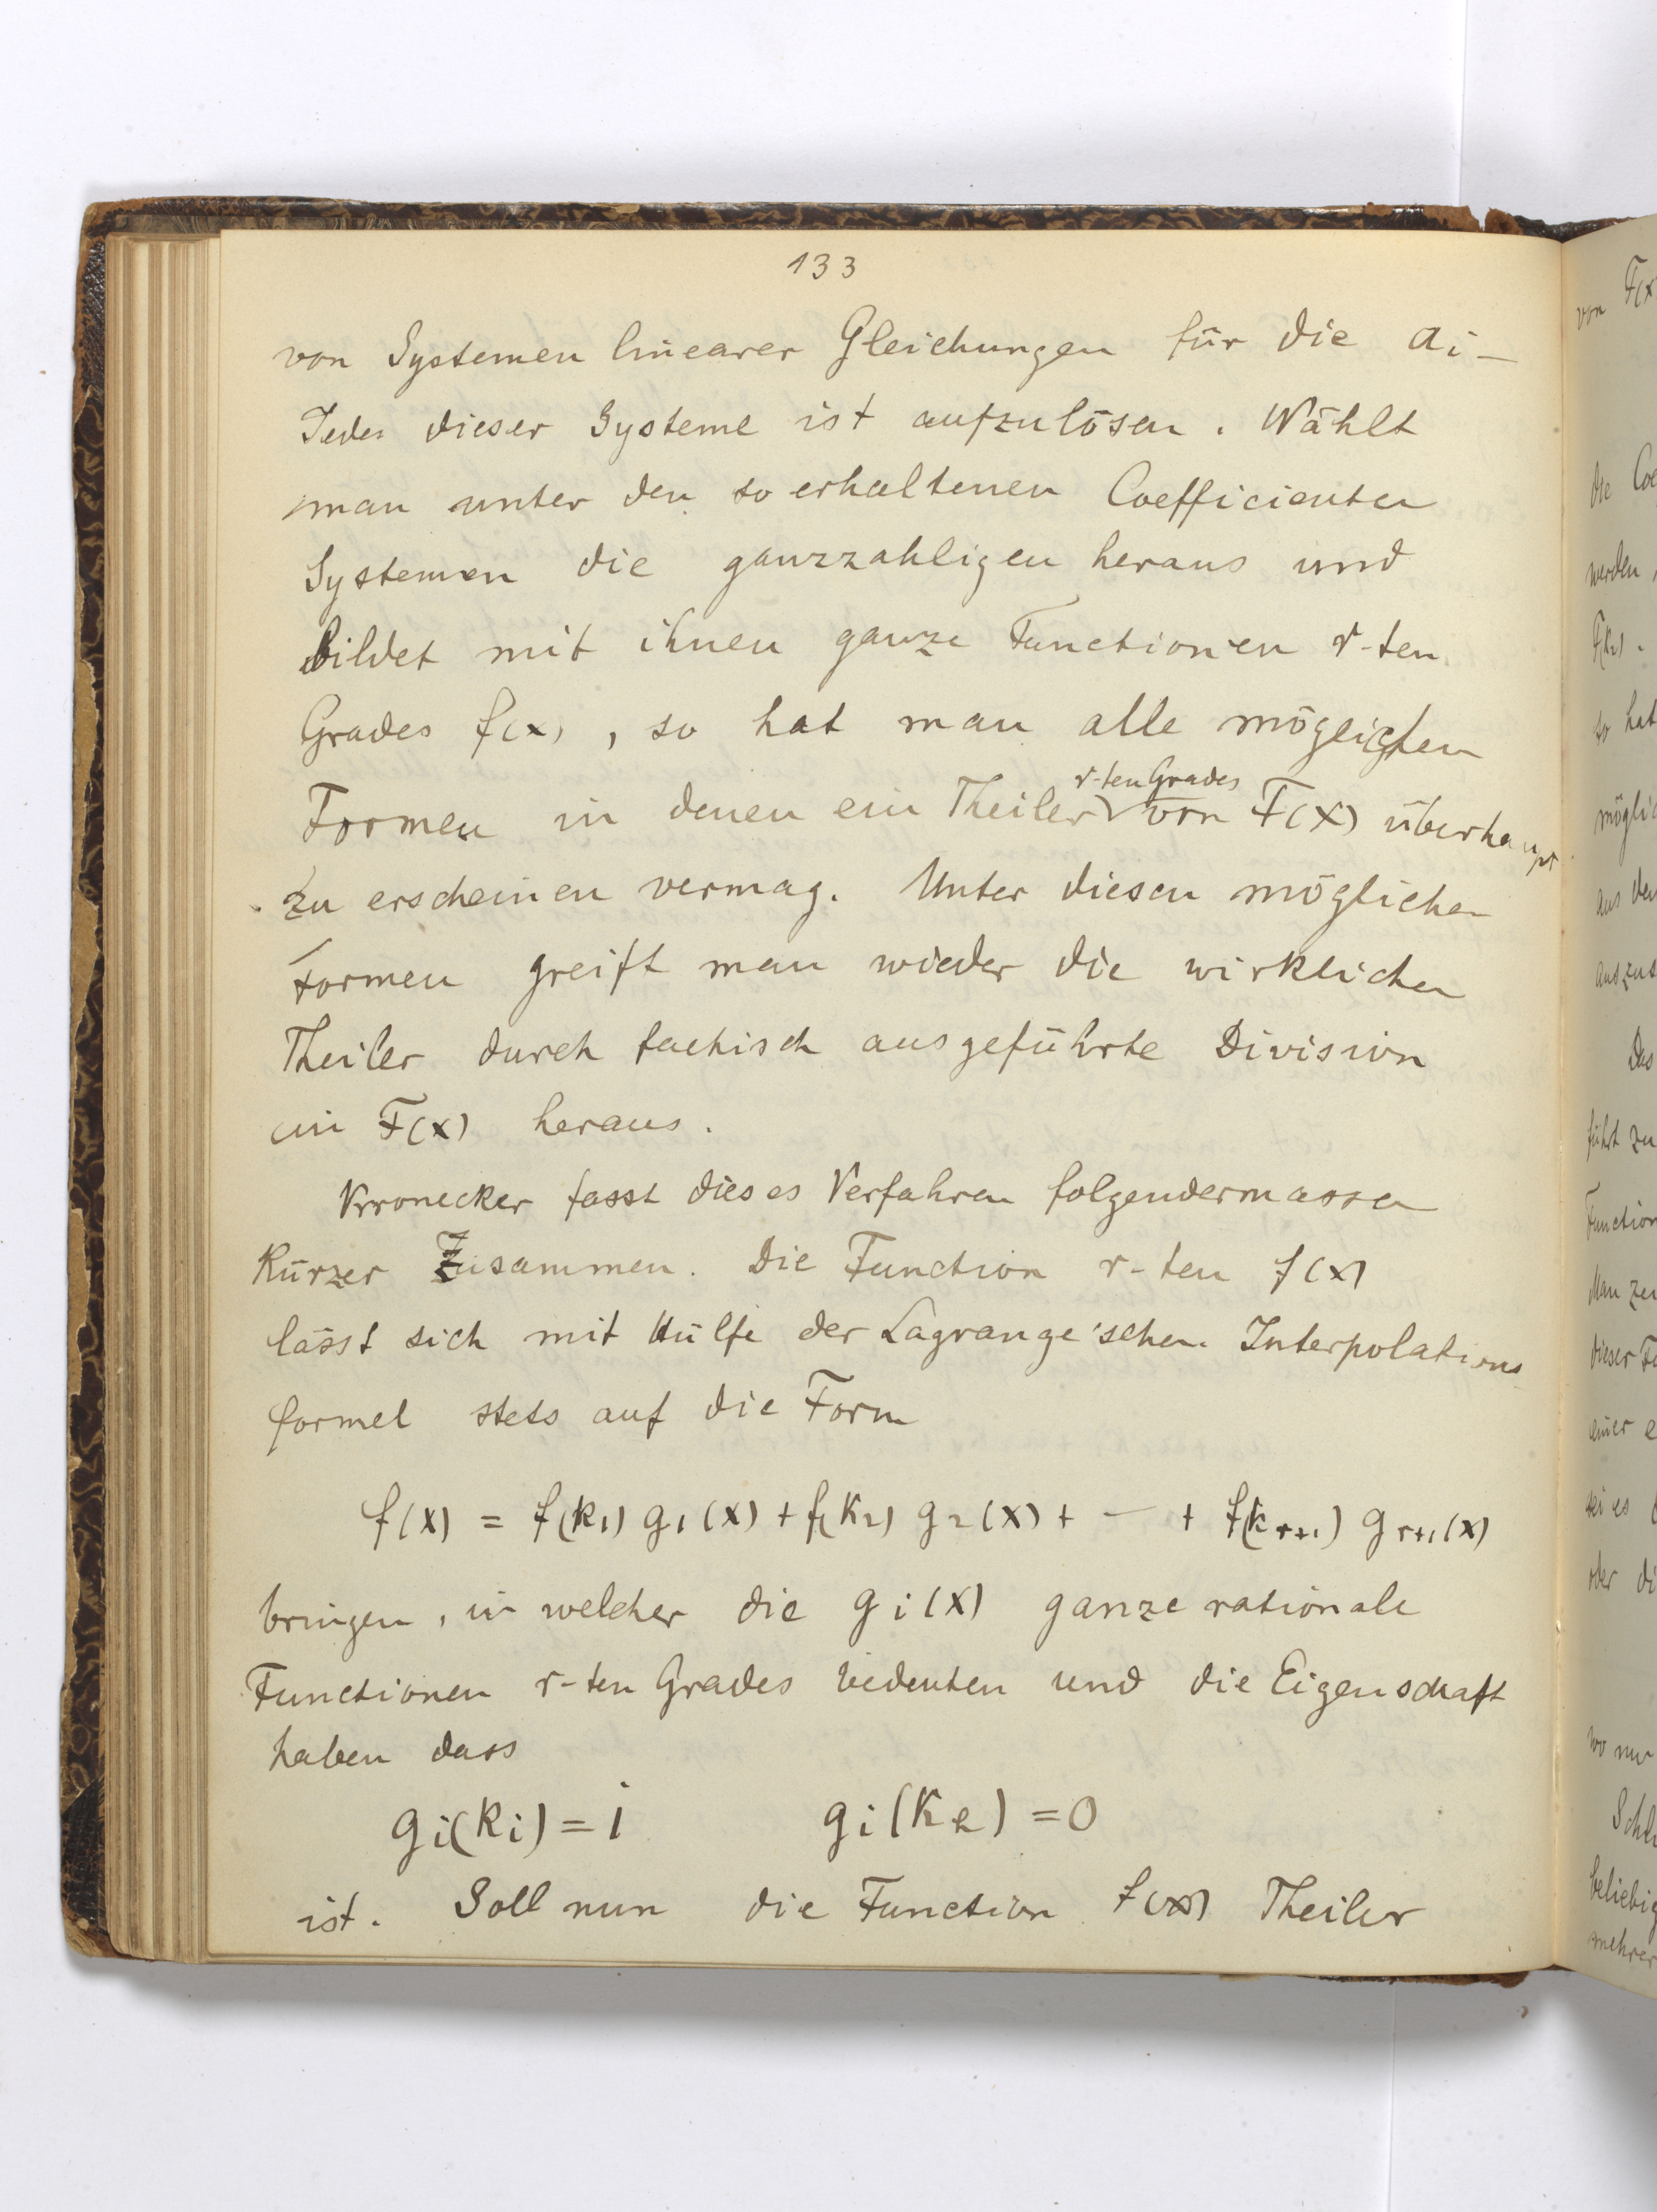 133
von Systemen linearer Gleichungen für die ai –
Jedes dieser Systeme ist aufzulösen. Wählt
man unter den so erhaltenen Coefficienten
Systemen die ganzzahligen heraus und
bildet mit ihnen ganze Functionen r-ten
Grades f(x), so hat man alle möglichen
r-ten Grades
Formen in denen ein Theiler von F(x) überhaupt
zu erscheinen vermag. Unter diesen möglichen
Formen greift man wieder die wirklichen
Theiler durch factisch ausgeführte Division
in F(x) heraus.
Kronecker fasst dieses Verfahren folgendermassen
kürzer zusammen. Die Function r-ten f(x)
lässt sich mit Hülfe der Lagrange'schen Interpolations
formel stets auf die Form
f(x) = f(k1) g1(x) + f(k2) g2(x) + — + f(kr+1) gr+1(x)
bringen, in welcher die gi(x) ganze rationale
Functionen r-ten Grades bedeuten und die Eigenschaft
haben dass
gi(ki) = 1 gi(kk) = 0
ist. Soll nun die Function f(x) Theiler
von F(x
die Coe
werden
F(k2).
so hat
möglic
aus den
auszus
Das
führt zu
Function
Man zer
dieser Fu
einer e
sei es
oder di
wo nur
Schl
beliebig
mehrer